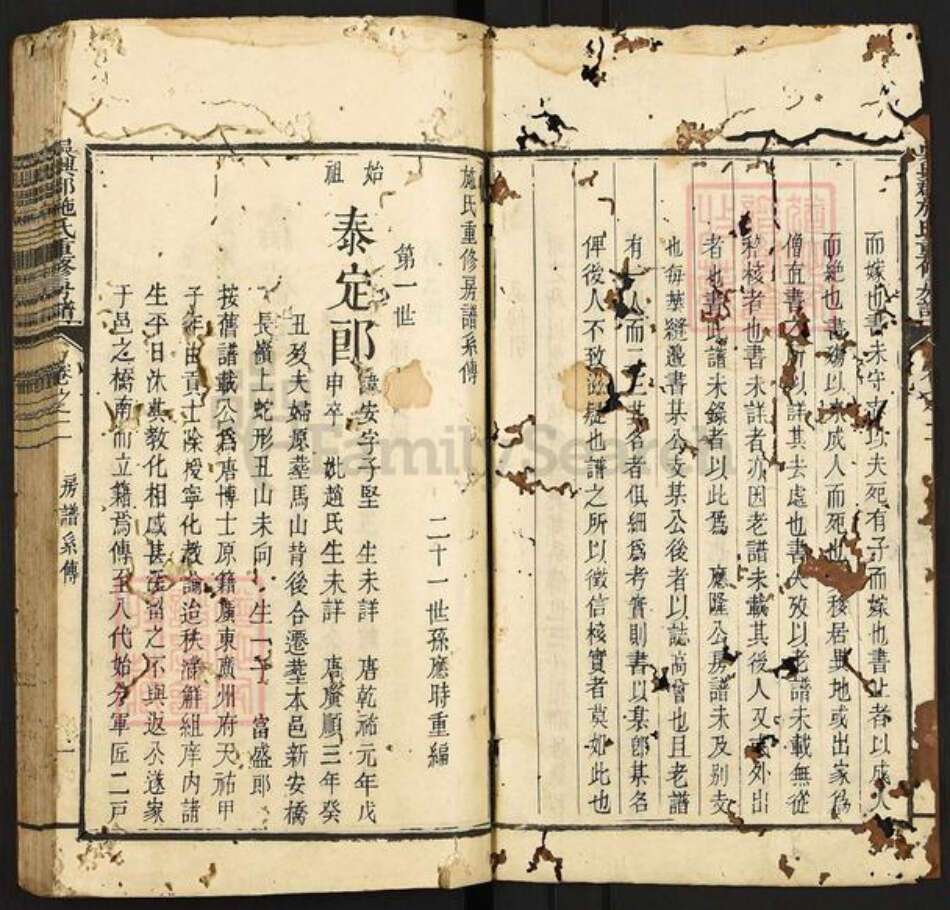 而嫁也書未守志以夫死有子而嫁也書止者以成人
而絕也書殤以未成人而死也書移居異地或出家爲
僧直書之所以詳其去處也書失攷以老譜未載無從
稽核者也書未詳者亦因老譜未載其後人又或外出
者也書此譜未錄者以此爲 應隆公房譜未及別支
也每葉縫邊書某公支某公後者以誌高曾也且老譜
有一人而二三其名者俱細爲考實則書以某郎某名
俾後人不致滋疑也譜之所以徵信核實者莫如此也
施氏重修房譜系傳
二十一世孫應時重編
第一世
始祖 泰定郎 諱安字子堅 生未詳 唐乾祐元年戊
申卒 妣趙氏生未詳 唐廣順三年癸
丑歿夫婦原塟馬山背後合遷塟本邑新安橋
長嶺上蛇形丑山未向 生一子 富盛郎
按舊譜載公爲唐博士原籍廣東廣州府天祐甲
子年由貢士除授寧化教諭迨秩滿解組庠內諸
生平日沐其教化相感甚深留之不與返公遂家
于邑之橋南而立籍焉傳至八代始分軍匠二戸
吳興郡施氏重修房譜 卷之二 房譜系傳 一
FamilySearch